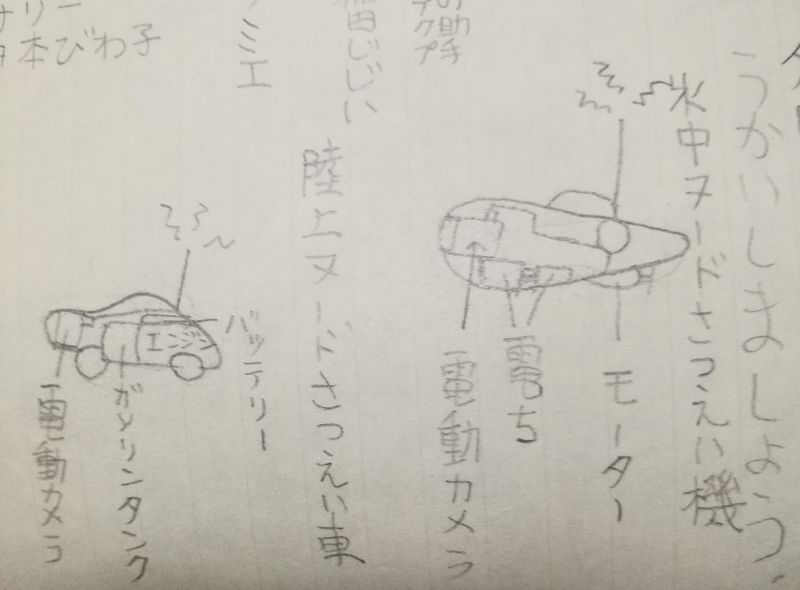 うかいしましょう.
水中ヌードさつえい機
モーター
電ち
電動カメラ
の助手
陸上ヌードさつえい車
じじい
ミエ
バッテリー
エンジン
ガソリンタンク
電動カメラ
リー
本びわ子